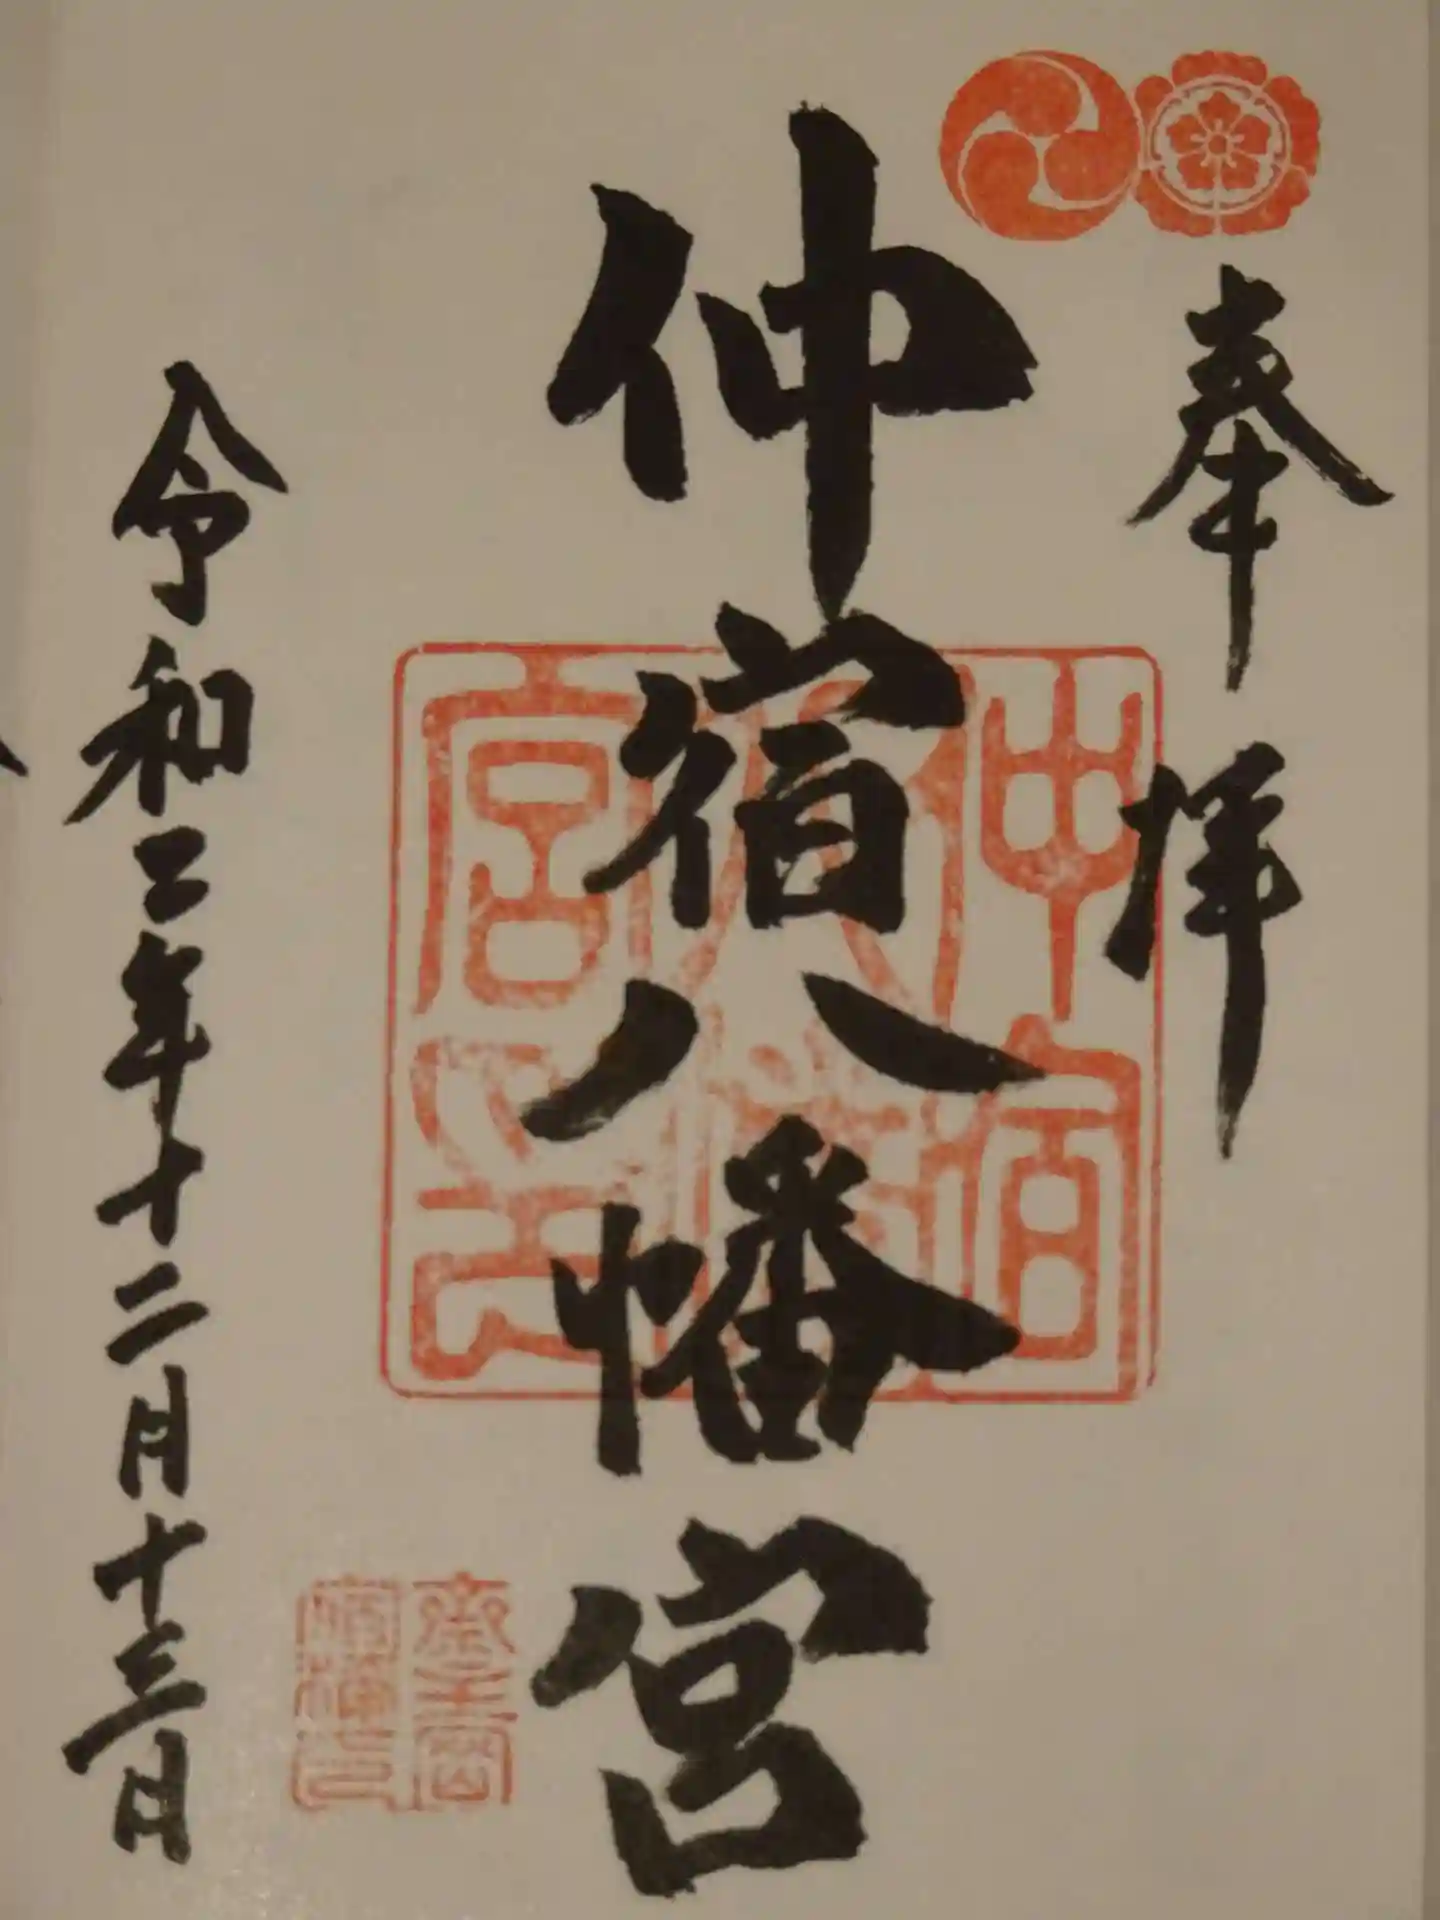 奉拝
仲宿八幡宮
仲宿八幡宮之印
令和二年十二月十三日